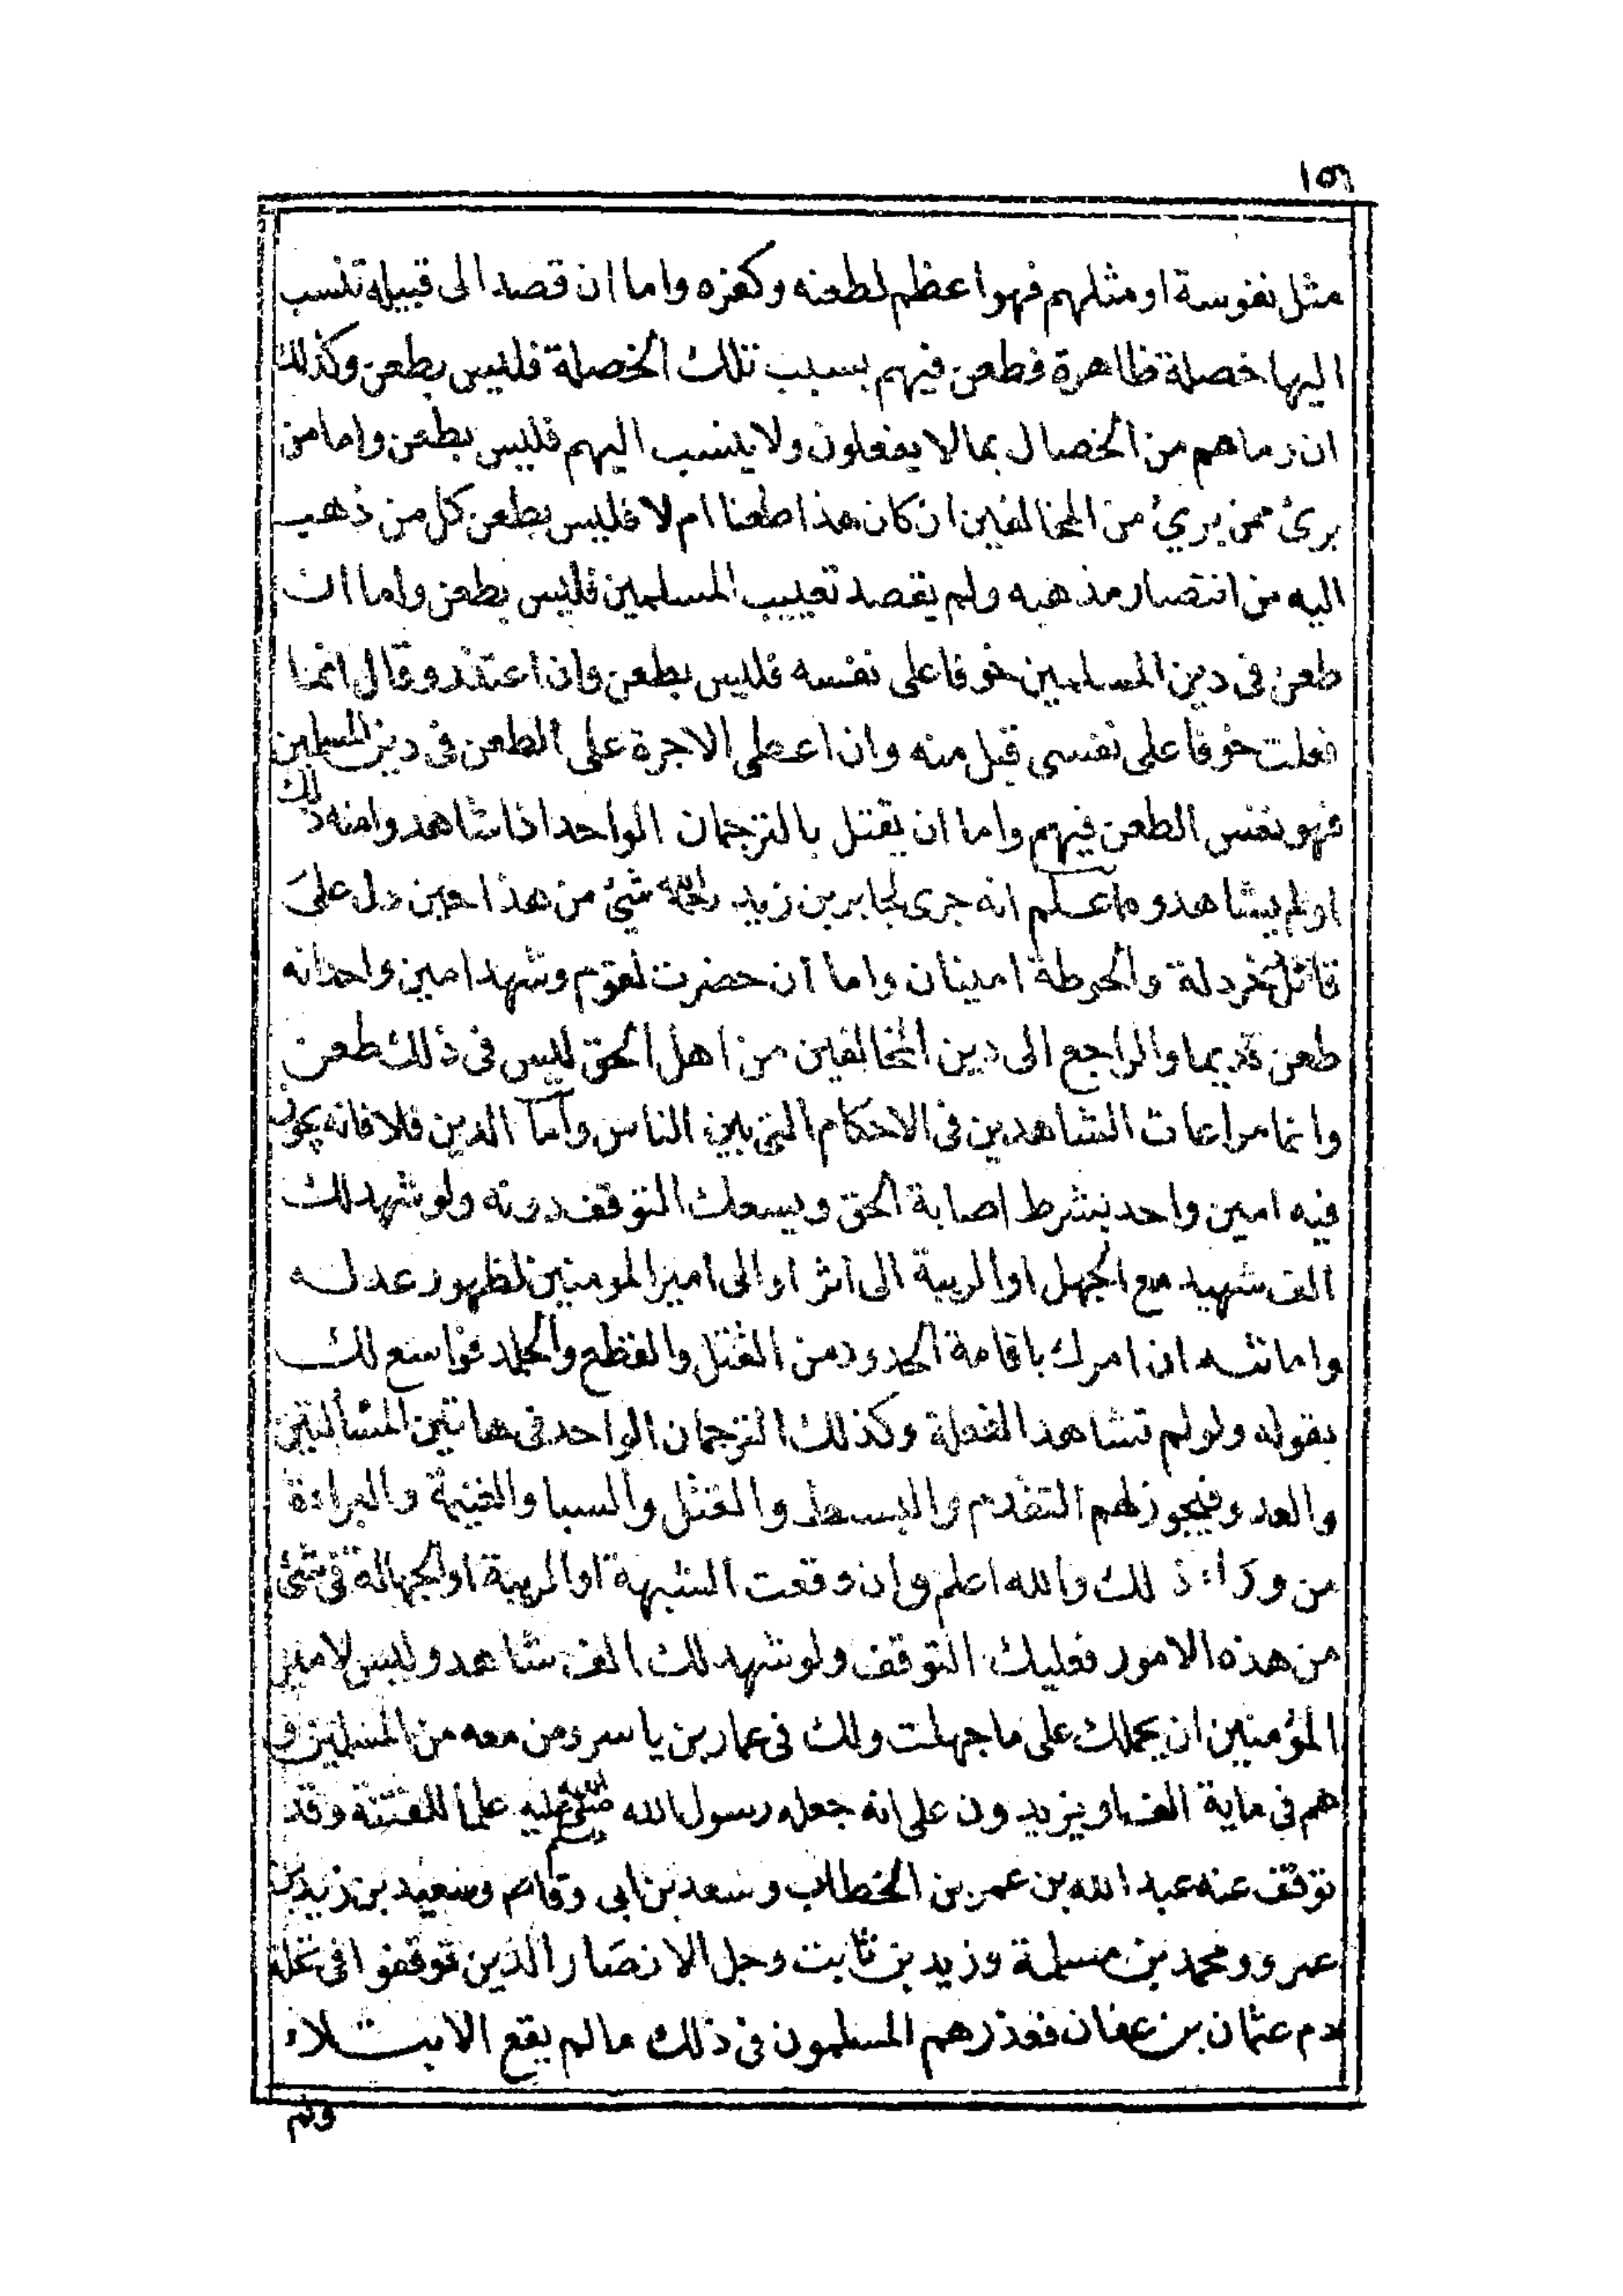 ١٥٦
مثل نفوسة او مثلهم فهو اعظم لطعنه وكفره واما ان قصد الى قبيله تنسب
اليها خصلة ظاهرة فطعن فيهم بسبب تلك الخصلة فليس بطعن وكذلك
ان رماهم من الخصال بمالا يفعلون ولا ينسب اليهم فليس بطعن واما من
برئ ممن يرئ من المخالفين ان كان هذا طعنا ام لا فليس بطعن كل من ذهب
اليه من انتصار مذهبه ولم يقصد تعييب المسلمين فليس بطعن واما ان
طعن فى دين المسلمين خوفا على نفسه فليس بطعن وان اعتذر وقال انما
فعلت خوفا على نفسى قبل منه وان اعطى الاجرة على الطعن فى دين المسلمين
فهو نفس الطعن فيهم واما ان يقتل بالترجمان الواحد اذا شاهدوا منه ذلك
او لم يشاهدو ما علم انه جرى لجابر بن زيد رحمه الله شئ من هذا حين دل على
قاتل خردلة والحوطة امينان واما ان حضرت لقوم وشهد امين واحد انه
طعن قديما والراجع الى دين المخالفين من اهل الحق ليس فى ذلك طعن
وانما مراعات الشاهدين فى الاحكام التى بين الناس واما الدين فلا فانه يجوز
فيه امين واحد بشرط اصابة الحق ويسعك التوقف دونه ولو شهد لك
الف شهيد مع الجهل او الريبة الى اثر او الى امير المومنين لظهور عدله
وامانته ان امرك باقامة الحدود من القتل والقطع والجلد فواسع لك
بقوله ولو لم تشاهد الفعلة وكذلك الترجمان الواحد فى هاتين المسألتين
والعدو فيجوز لهم التقدم والبسط والقتل والسبا والغنيمة والبراءة
من وراء ذلك والله اعلم وان وقعت الشبهة او الريبة او الجهالة فى شئ
من هذه الامور فعليك التوقف ولو شهد لك الف شاهد وليس لامير
المؤمنين ان يحملك على ما جهلت ولك فى عمار بن ياسر ومن معه من المسلمين و
هم فى ماية الف او يزيدون على انه جعله رسول الله صلى الله عليه وسلم علما للفتنة وقد
توقف عنه عبد الله بن عمر بن الخطاب وسعد بن ابى وقاص وسعيد بن زيد بن
عمرو ومحمد بن مسلمة وزيد بن ثابت وجل الانصار الذين توقفوا فى
دم عثمان بن عفان فعذرهم المسلمون فى ذلك ما لم يقع الابتلاء
ولم